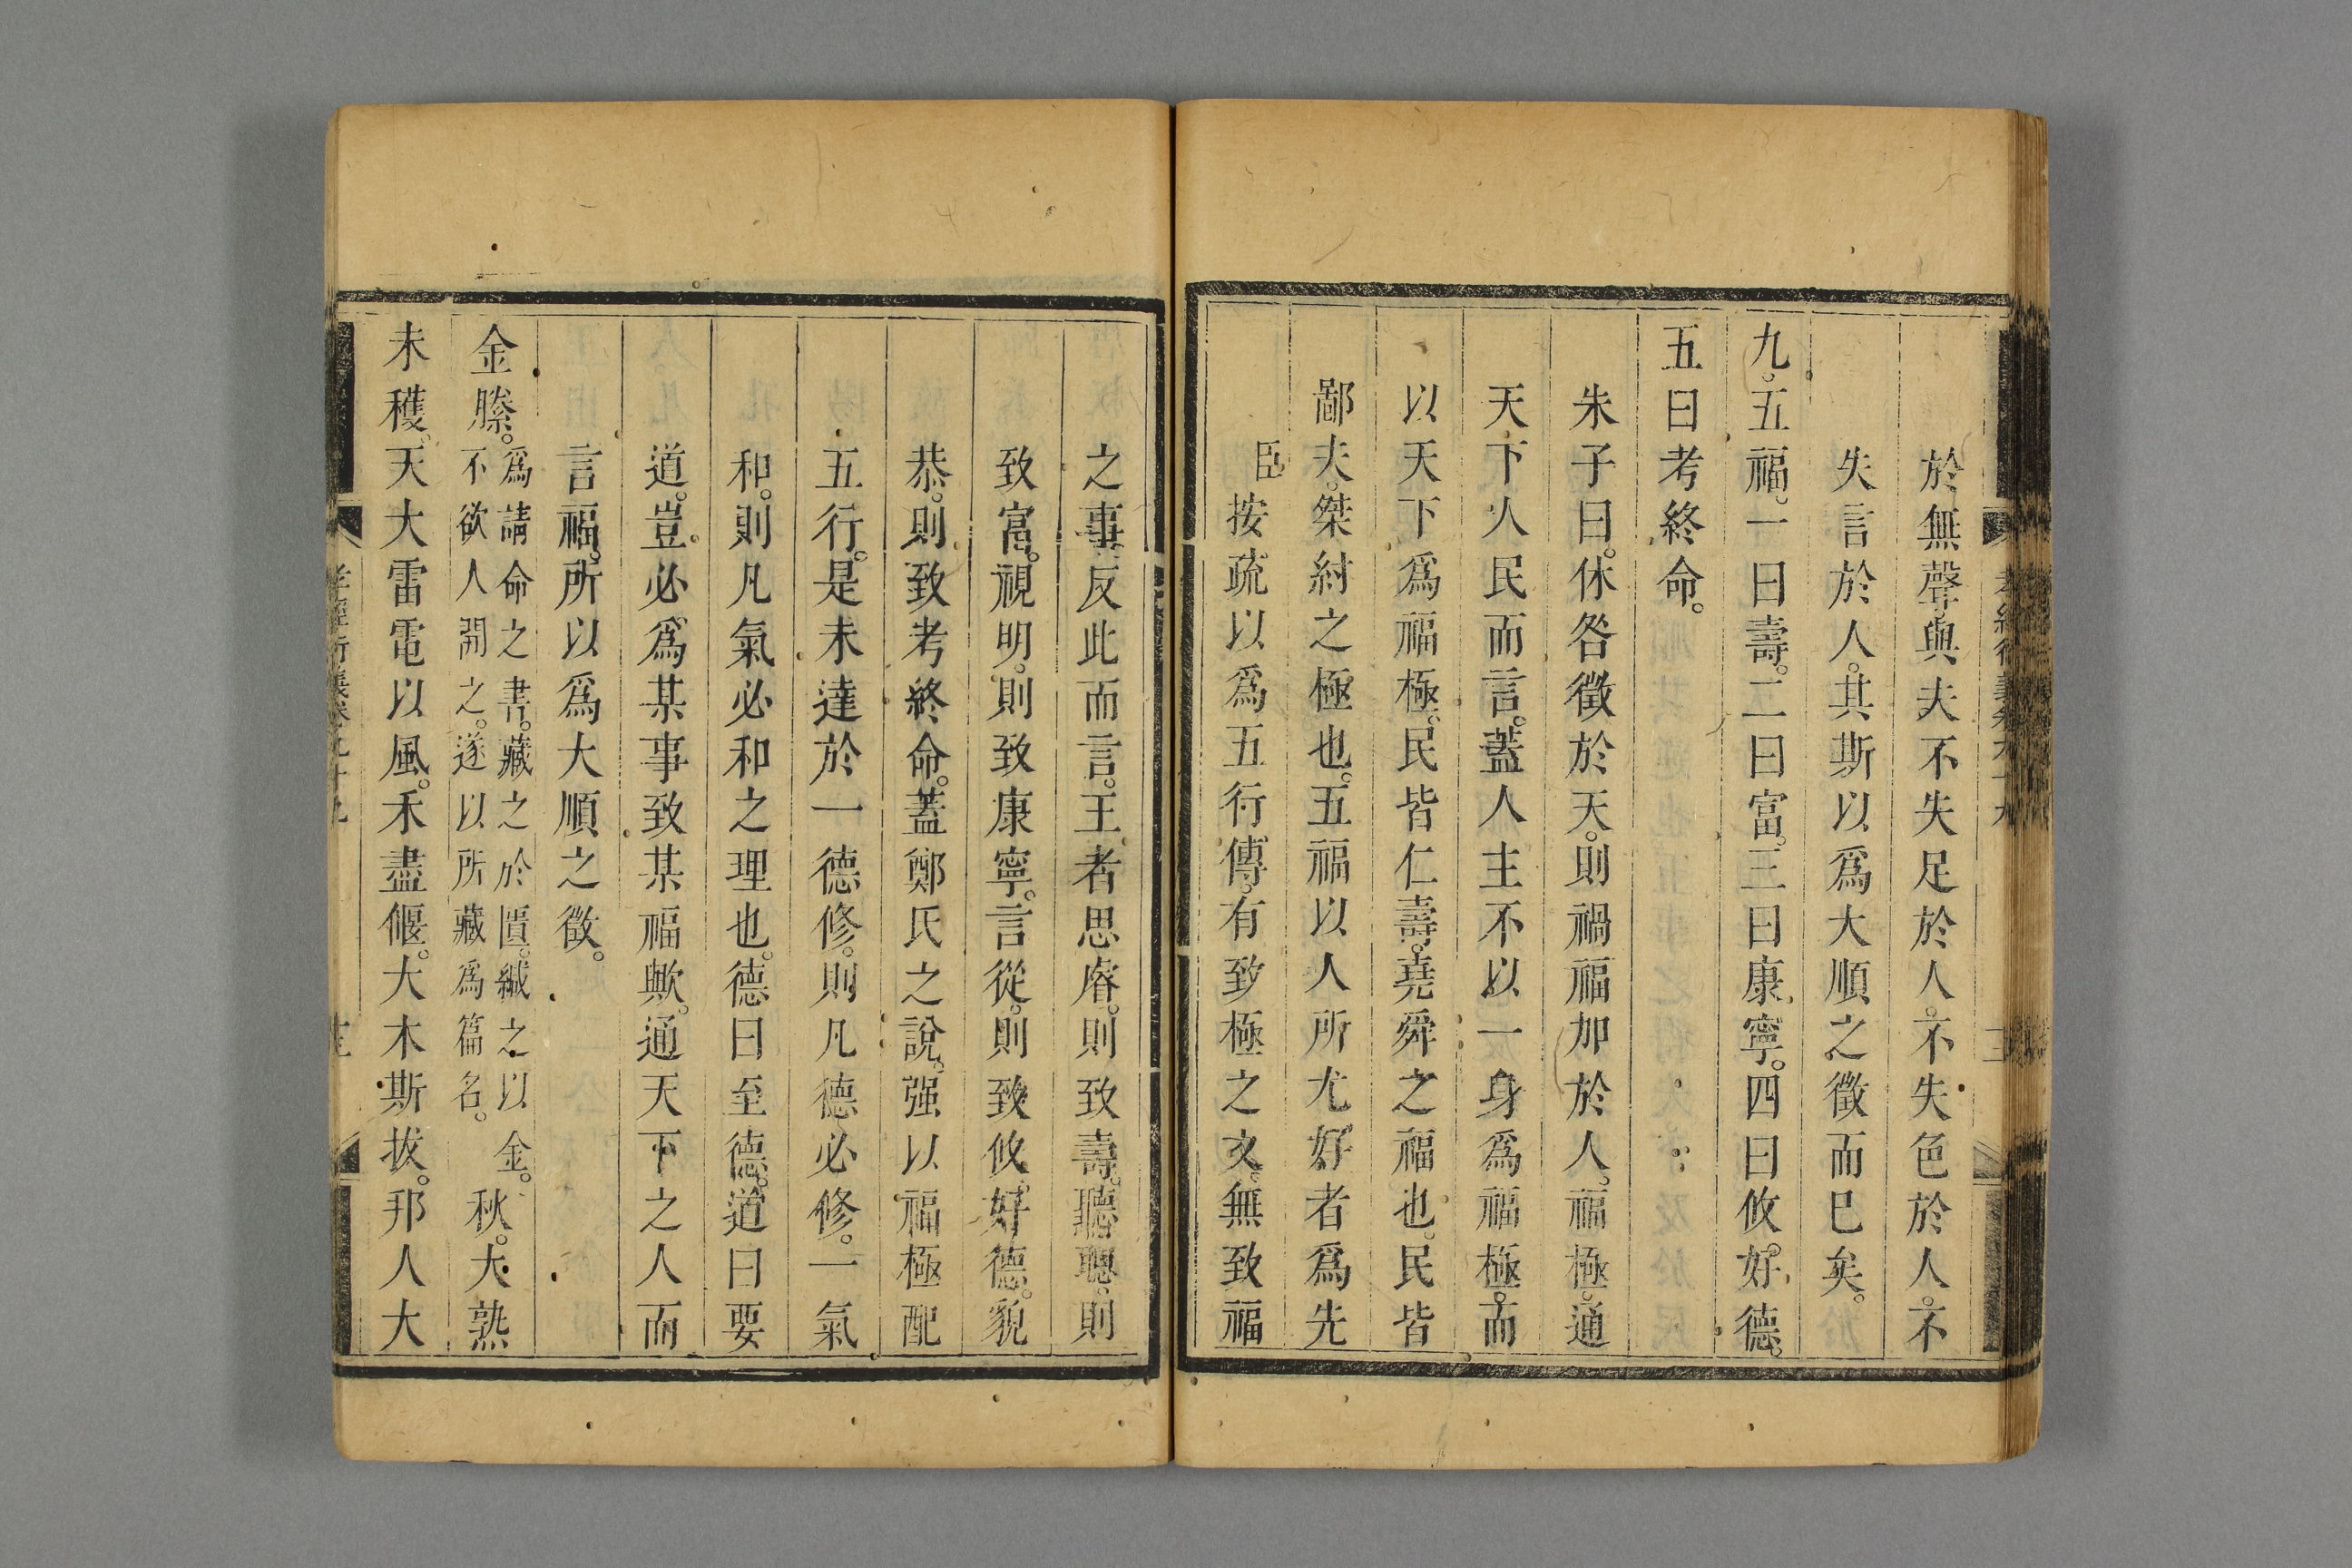 於無聲。與夫不失足於人。不失色於人。不
失言於人。其斯以爲大順之徵而已矣。
九。五福。一曰壽。二曰富。三曰康寧。四曰攸好德。
五曰考終命。
朱子曰。休咎徵於天。則禍福加於人。福極。通
天下人民而言。蓋人主不以一身爲福極。而
以天下爲福極。民皆仁壽。堯舜之福也。民皆
鄙夫。桀紂之極也。五福以人所尤好者爲先
臣按疏以爲五行傳。有致極之文。無致福
之事。反此而言。王者思睿。則致壽。聽聰。則
致富。視明。則致康寧。言從。則致攸好德。貌
恭。則致考終命。蓋鄭氏之說。强以福極配
五行。是未達於一德修。則凡德必修。一氣
和。則凡氣必和之理也。德曰至德。道曰要
道。豈必爲某事致某福歟。通天下之人而
言福。所以爲大順之徵。
金縢。爲請命之書。藏之於匱。緘之以金。
不欲人開之。遂以所藏爲篇名。
秋。大熟
未穫。天大雷電以風。禾盡偃。大木斯拔。邦人大
孝經衍義卷九十九